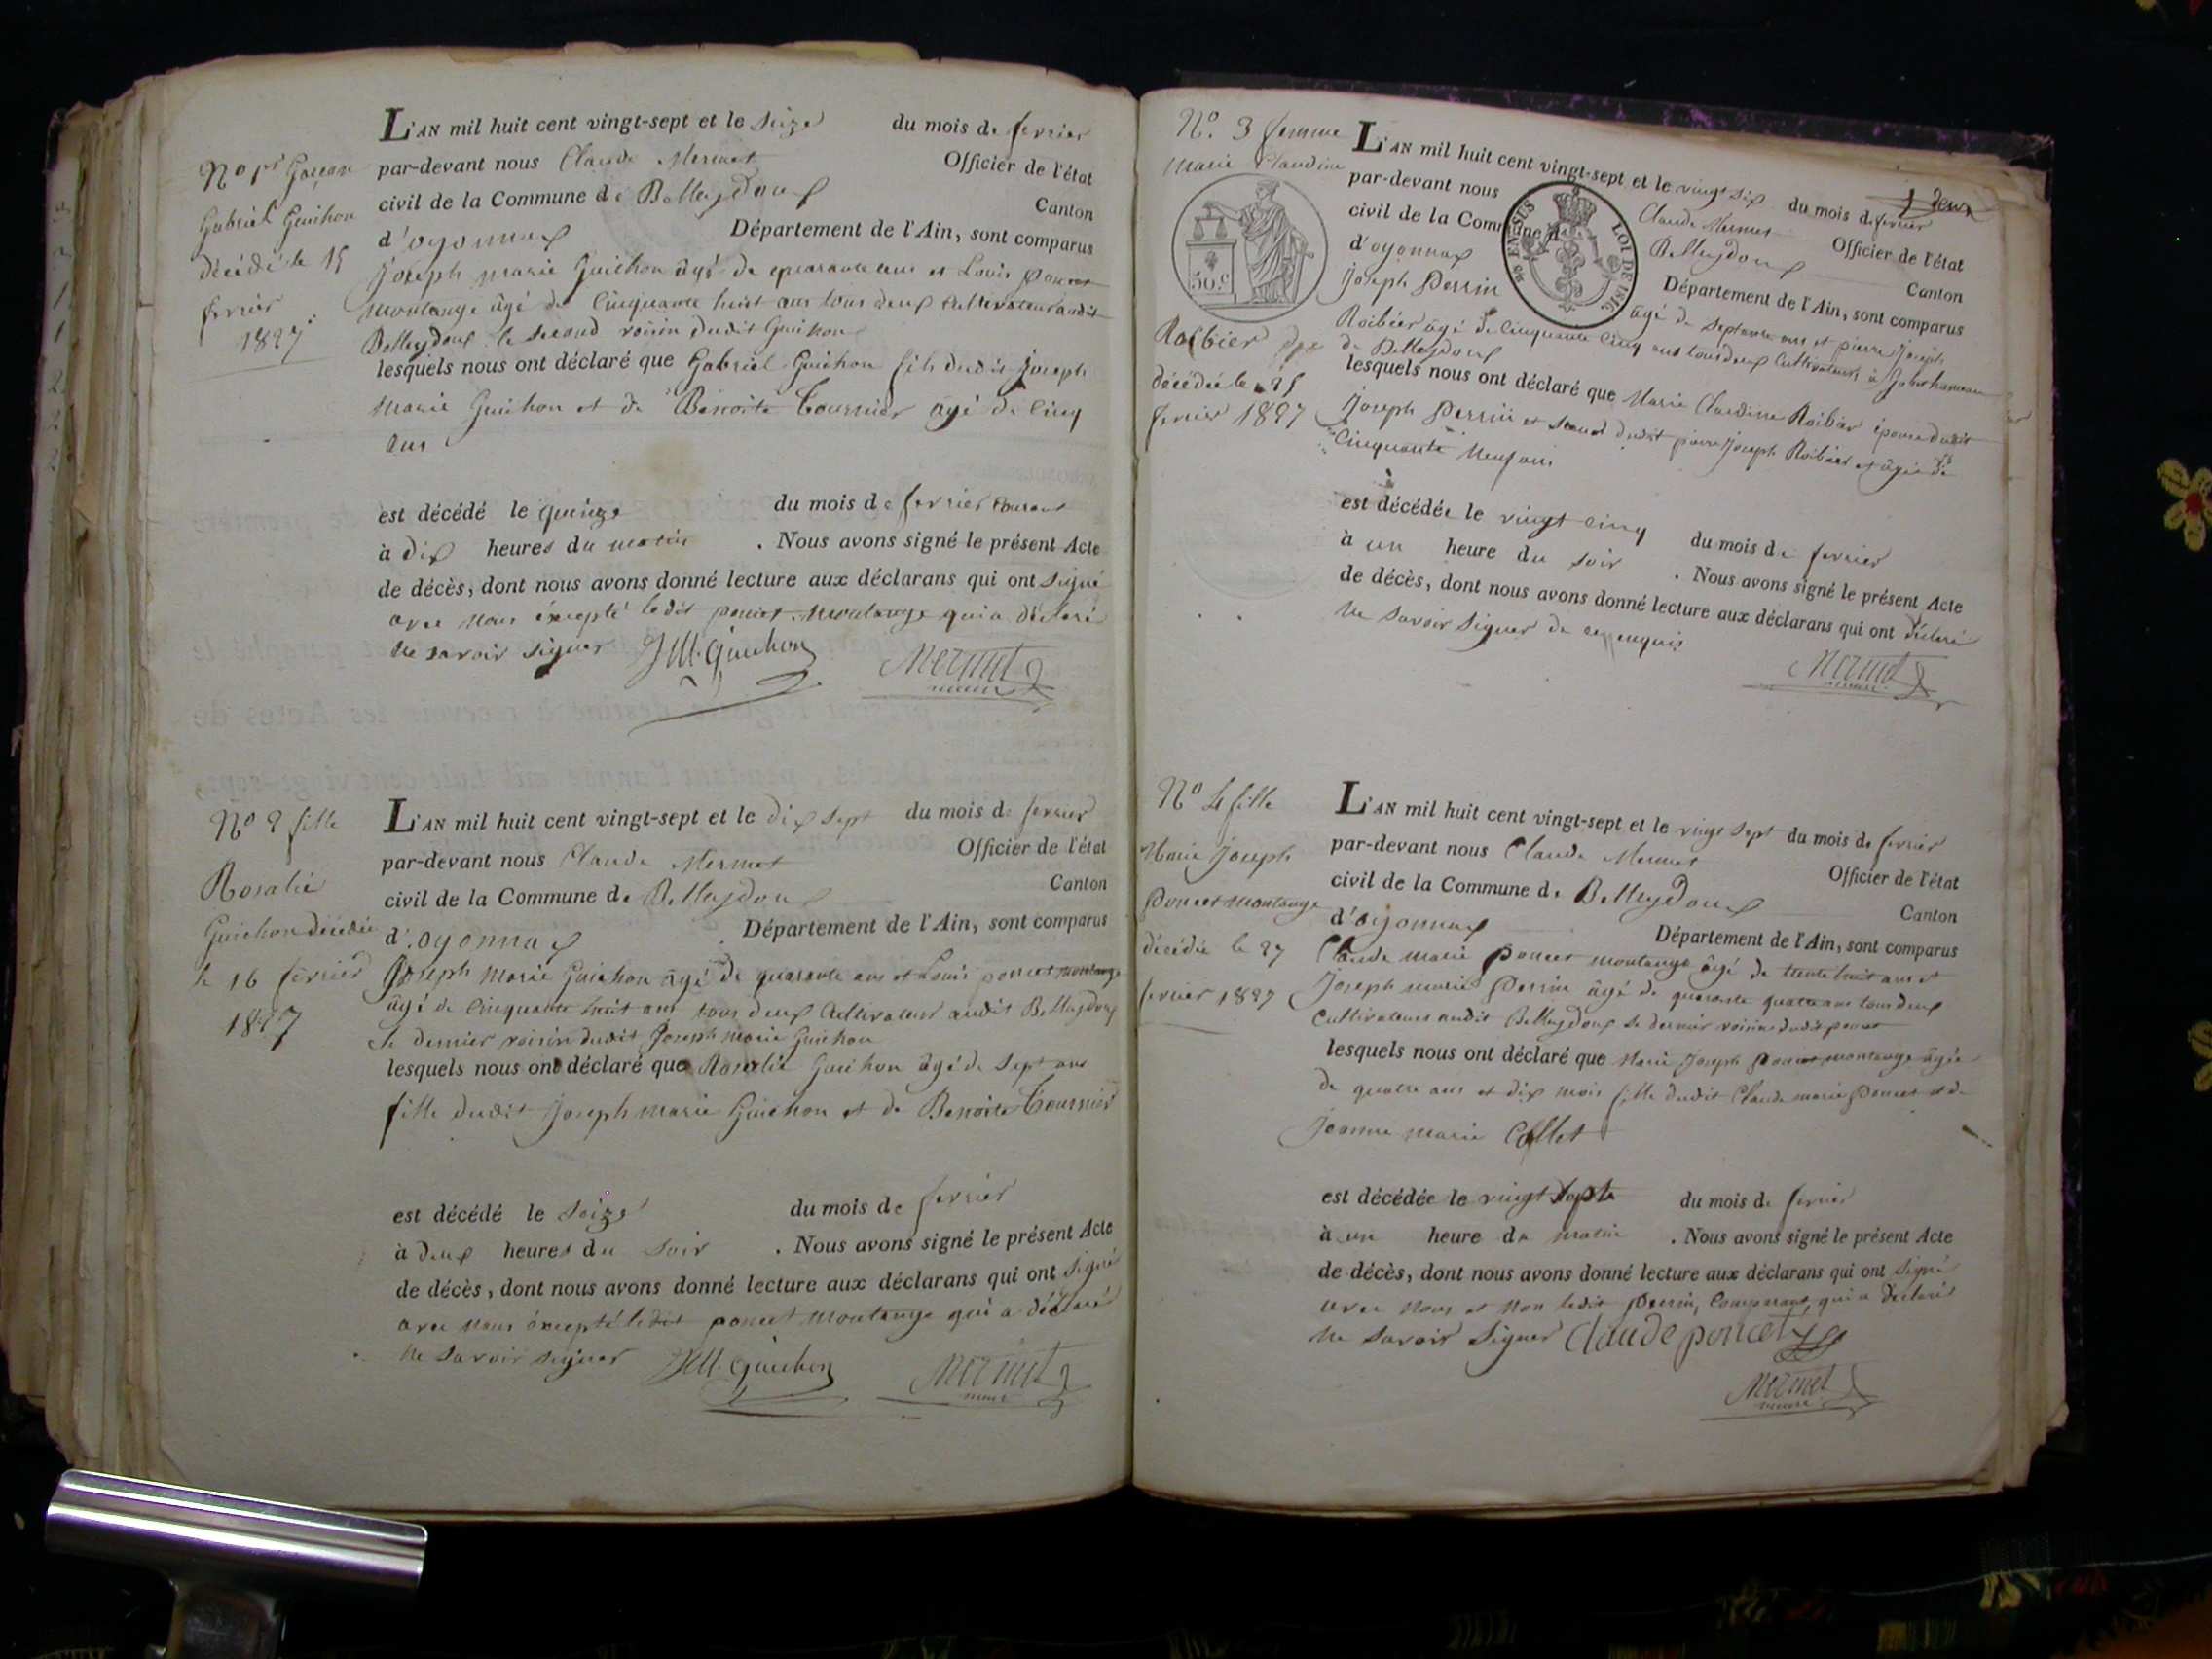 No 1er Garçon
Gabriel Guichon
décédé le 15
fevrier
1827
L'AN mil huit cent vingt-sept et le seize du mois de fevrier
par-devant nous Claude Mermet Officier de l'état
civil de la Commune de Belleydoux Canton
d'oyonnax Département de l'Ain, sont comparus
Joseph marie Guichon âgé de quarante ans et Louis poncet
montange âgé de Cinquante huit ans tous deux cultivateurs audit
Belleydoux le second voisin dudit Guichon
lesquels nous ont déclaré que Gabriel Guichon fils dudit Joseph
Marie Guichon et de Benoite Tournier âgé de cinq
ans
est décédé le quinze du mois de fevrier courant
à dix heures du matin . Nous avons signé le présent Acte
de décès, dont nous avons donné lecture aux déclarans qui ont signé
avec nous éxcepté ledit poncet montange qui a déclaré
ne savoir signer JM. Guichon Mermet
maire
No 2 fille
Rosalie
Guichon décédée
le 16 fevrier
1827
L'AN mil huit cent vingt-sept et le dix sept du mois de fevrier
par-devant nous Claude Mermet Officier de l'état
civil de la Commune de Belleydoux Canton
d'oyonnax Département de l'Ain, sont comparus
Joseph Marie Guichon âgé de quarante ans et Louis poncet montange
âgé de Cinquante huit ans tous deux Cultivateur audit Belleydoux
le dernier voisin dudit Joseph marie Guichon
lesquels nous ont déclaré que Rosalie Guichon âgé de sept ans
fille dudit Joseph marie Guichon et de Benoite Tournier
est décédé le seize du mois de fevrier
à deux heures du soir . Nous avons signé le présent Acte
de décès, dont nous avons donné lecture aux déclarans qui ont signé
avec nous éxcepté ledit poncet montange qui a déclaré
ne savoir signer JM. Guichon Mermet
maire
No. 3 femme
marie Claudine
50.C
Roibier
décédée le 25
fevrier 1827
deux
L'AN mil huit cent vingt-sept et le vingt six du mois de fevrier
par-devant nous Claude Mermet Officier de l'état
civil de la Commune de Belleydoux Canton
d'oyonnax Département de l'Ain, sont comparus
LOI DE 1816
Joseph Perrin âgé de septante ans et pierre Joseph
Roibier âgé de Cinquante cinq ans tous deux Cultivateurs à Gobet hameau
de Belleydoux
lesquels nous ont déclaré que Marie Claudine Roibier épouse dudit
Joseph Perrin et soeur dudit pierre Joseph Roibier et âgée de
Cinquante Neuf ans
est décédée le vingt cinq du mois de fevrier
à un heure du soir . Nous avons signé le présent Acte
de décès, dont nous avons donné lecture aux déclarans qui ont déclaré
ne savoir signer de ce enquis
Mermet
maire
No 4 fille
Marie Joseph
Poncet montange
décédée le 27
fevrier 1827
L'AN mil huit cent vingt-sept et le vingt sept du mois de fevrier
par-devant nous Claude Mermet Officier de l'état
civil de la Commune de Belleydoux Canton
d'oyonnax Département de l'Ain, sont comparus
Claude marie poncet montange âgé de trente huit ans et
Joseph marie Perrin âgé de quarante quatre ans tous deux
Cultivateurs audit Belleydoux le dernier voisin dudit poncet
lesquels nous ont déclaré que Marie Joseph Poncet montange âgée
de quatre ans et dix mois fille dudit Claude marie Poncet et de
Jeanne marie Collet
est décédée le vingt sept du mois de fevrier
à un heure du matin . Nous avons signé le présent Acte
de décès, dont nous avons donné lecture aux déclarans qui ont signé
avec nous et non ledit Perrin, Comparant, qui a déclaré
ne savoir signer Claude poncet
Mermet
maire